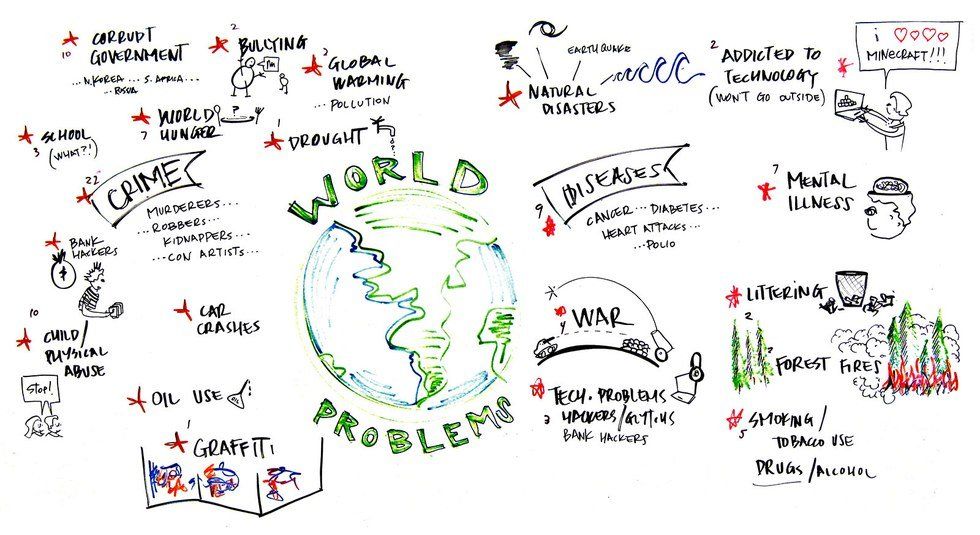 CORRUPT
GOVERNMENT
10
...N.KOREA... S. AFRICA...
2
BULLYING
GLOBAL
WARMING
...POLLUTION
WORLD
HUNGER
7
?
1
DROUGHT
SCHOOL
3
(WHAT?!)
22
CRIME
MURDERERS...
...ROBBERS...
KIDNAPPERS
...CON ARTISTS...
BANK
HACKERS
$
10
CHILD/
PHYSICAL
ABUSE
STOP!
CAR
CRASHES
OIL USE
1
GRAFFITI
WORLD
PROBLEMS
EARTHQUAKE
NATURAL
DISASTERS
2
ADDICTED TO
TECHNOLOGY
(WON'T GO OUTSIDE)
i ♡♡♡♡
MINECRAFT!!!
9
DISEASES
CANCER... DIABETES...
HEART ATTACKS...
...POLIO
7
MENTAL
ILLNESS
4
WAR
TECH. PROBLEMS
3
HACKERS/GLITCHES
BANK HACKERS
LITTERING
2
FOREST FIRES
5
SMOKING/
TOBACCO USE
DRUGS/ALCOHOL